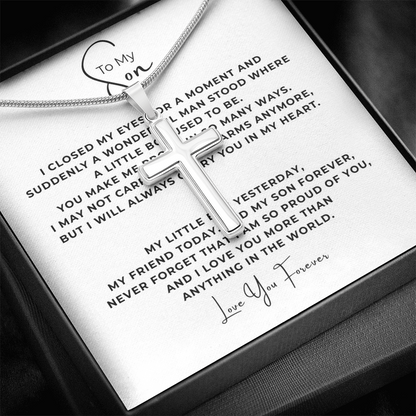 To My
Son
I CLOSED MY EYES FOR A MOMENT AND
SUDDENLY A WONDERFUL MAN STOOD WHERE
A LITTLE BOY USED TO BE.
YOU MAKE ME SO MANY WAYS.
I MAY NOT CARRY ARMS ANYMORE,
BUT I WILL ALWAYS CARRY YOU IN MY HEART.
MY LITTLE BOY YESTERDAY,
MY FRIEND TODAY AND MY SON FOREVER,
NEVER FORGET THAT I AM SO PROUD OF YOU,
AND I LOVE YOU MORE THAN
ANYTHING IN THE WORLD.
Love You Forever